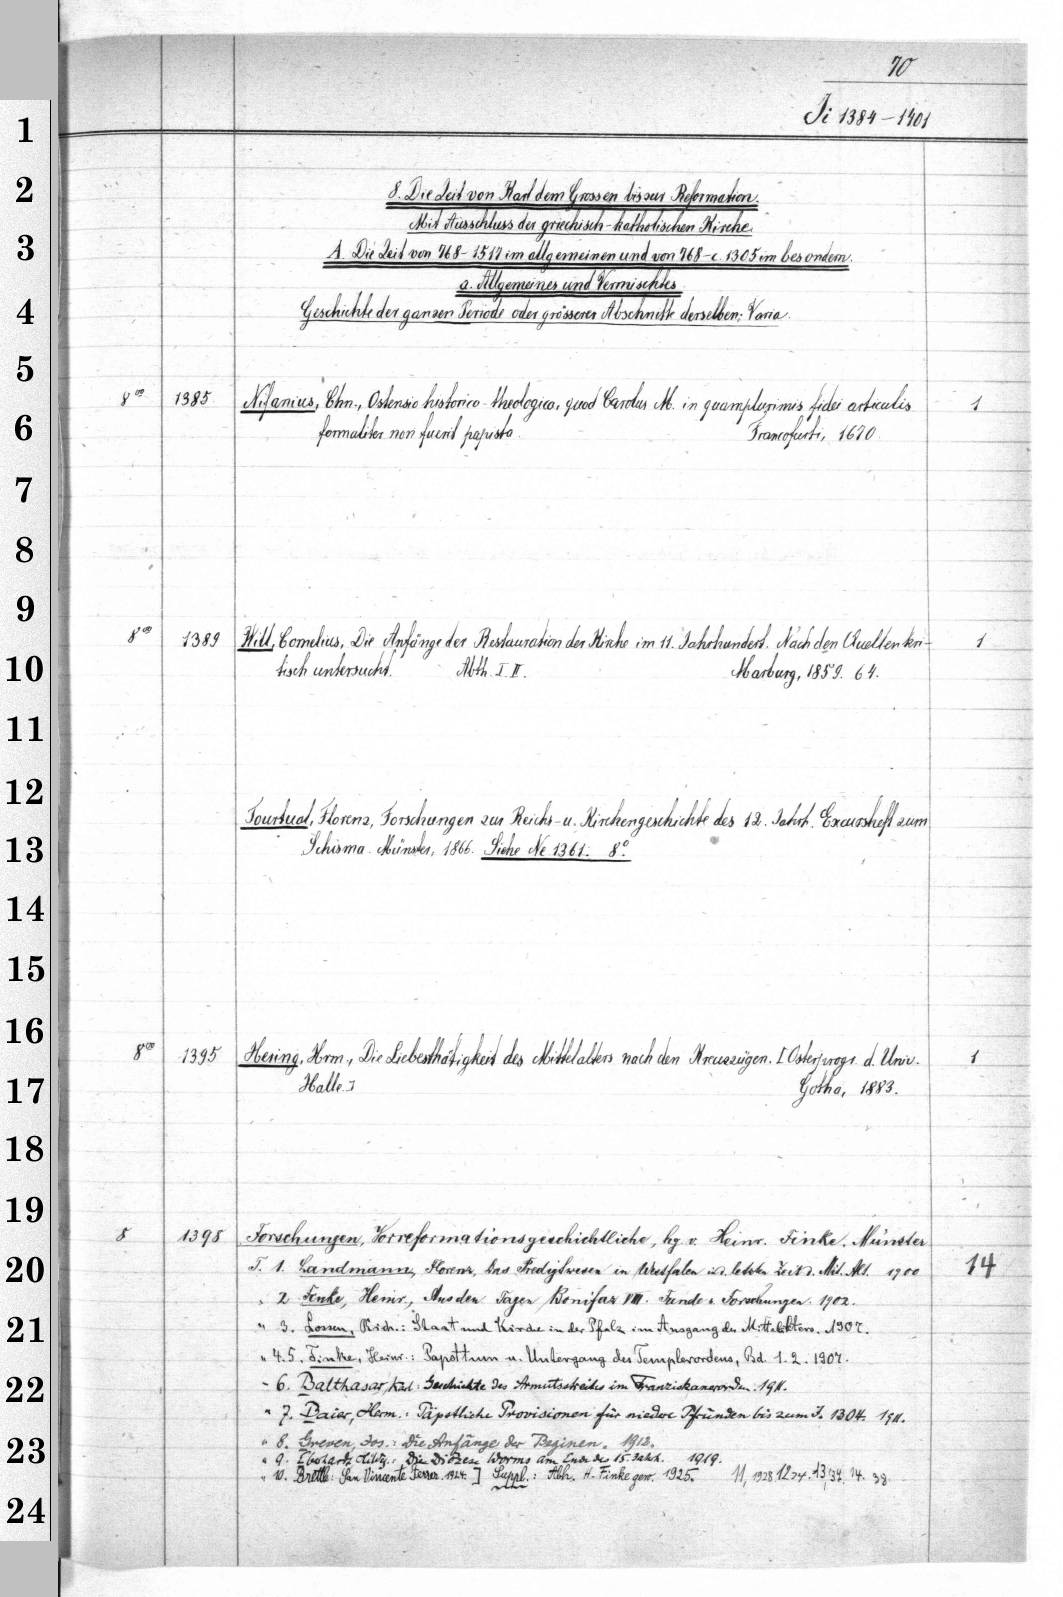 70
Ji 1384-1401
8. Die Zeit von Karl dem Grossen bis zur Reformation.
Mit Ausschluss der griechisch-katholischen Kirche.
A. Die Zeit von 768-1517 im allgemeinen und von 768-c. 1305 im besondern.
a. Allgemeines und Vermischtes
Geschichte der ganzen Periode oder grösserer Abschnitte derselben; Varia.
8vo 1385 Nifanius, Chn., Ostensio historico-theologica, quod Carolus M. in quamplurimis fidei articulis 1
formaliter non fuerit papista. Francofurti, 1670.
8vo 1389 Will, Cornelius, Die Anfänge der Restauration der Kirche im 11. Jahrhundert. Nach den Quellen kri- 1
tisch untersucht. Abth. I. II. Marburg, 1859. 64.
Tourtual, Florenz, Forschungen zur Reichs- u. Kirchengeschichte des 12. Jahrh. Excursheft zum
Schisma. Münster, 1866. Siehe Ne 1361. 8°.
8vo 1395 Hering, Hrm., Die Liebesthätigkeit des Mittelalters nach den Kreuzzügen. [Osterprogr. d. Univ. 1
Halle.] Gotha, 1883.
8 1398 Forschungen, Vorreformationsgeschichtliche, hg. v. Heinr. Finke. Münster
T. 1. Landmann, Florenz, Das Predigtwesen in Westfalen i. d. letzten Zeit d. Mit. Alt. 1900 14
" 2 Finke, Heinr., Aus den Tagen Bonifaz VIII. Funde u. Forschungen. 1902.
" 3. Lossen, Rich.: Staat und Kirche in der Pfalz im Ausgang des Mittelalters. 1907.
" 4.5. Finke, Heinr.: Papsttum u. Untergang des Templerordens, Bd. 1.2. 1907.
" 6. Balthasar, Karl: Geschichte des Armutsstreites im Franziskanerorden. 1911.
" 7. Baier, Herm.: Päpstliche Provisionen für niedere Pfründen bis zum J. 1304. 1911.
" 8. Greven, Jos.: Die Anfänge der Beginen. 1912.
" 9. Eberhard, Hildg.: Die Diözese Worms am Ende des 15. Jahrh. 1919.
" 10. Brettle: San Vincente Ferrer. 1924. ] Suppl.: Abh. H. Finke gew. 1925. 11, 1928 12, 34. 13, 34. 14. 38